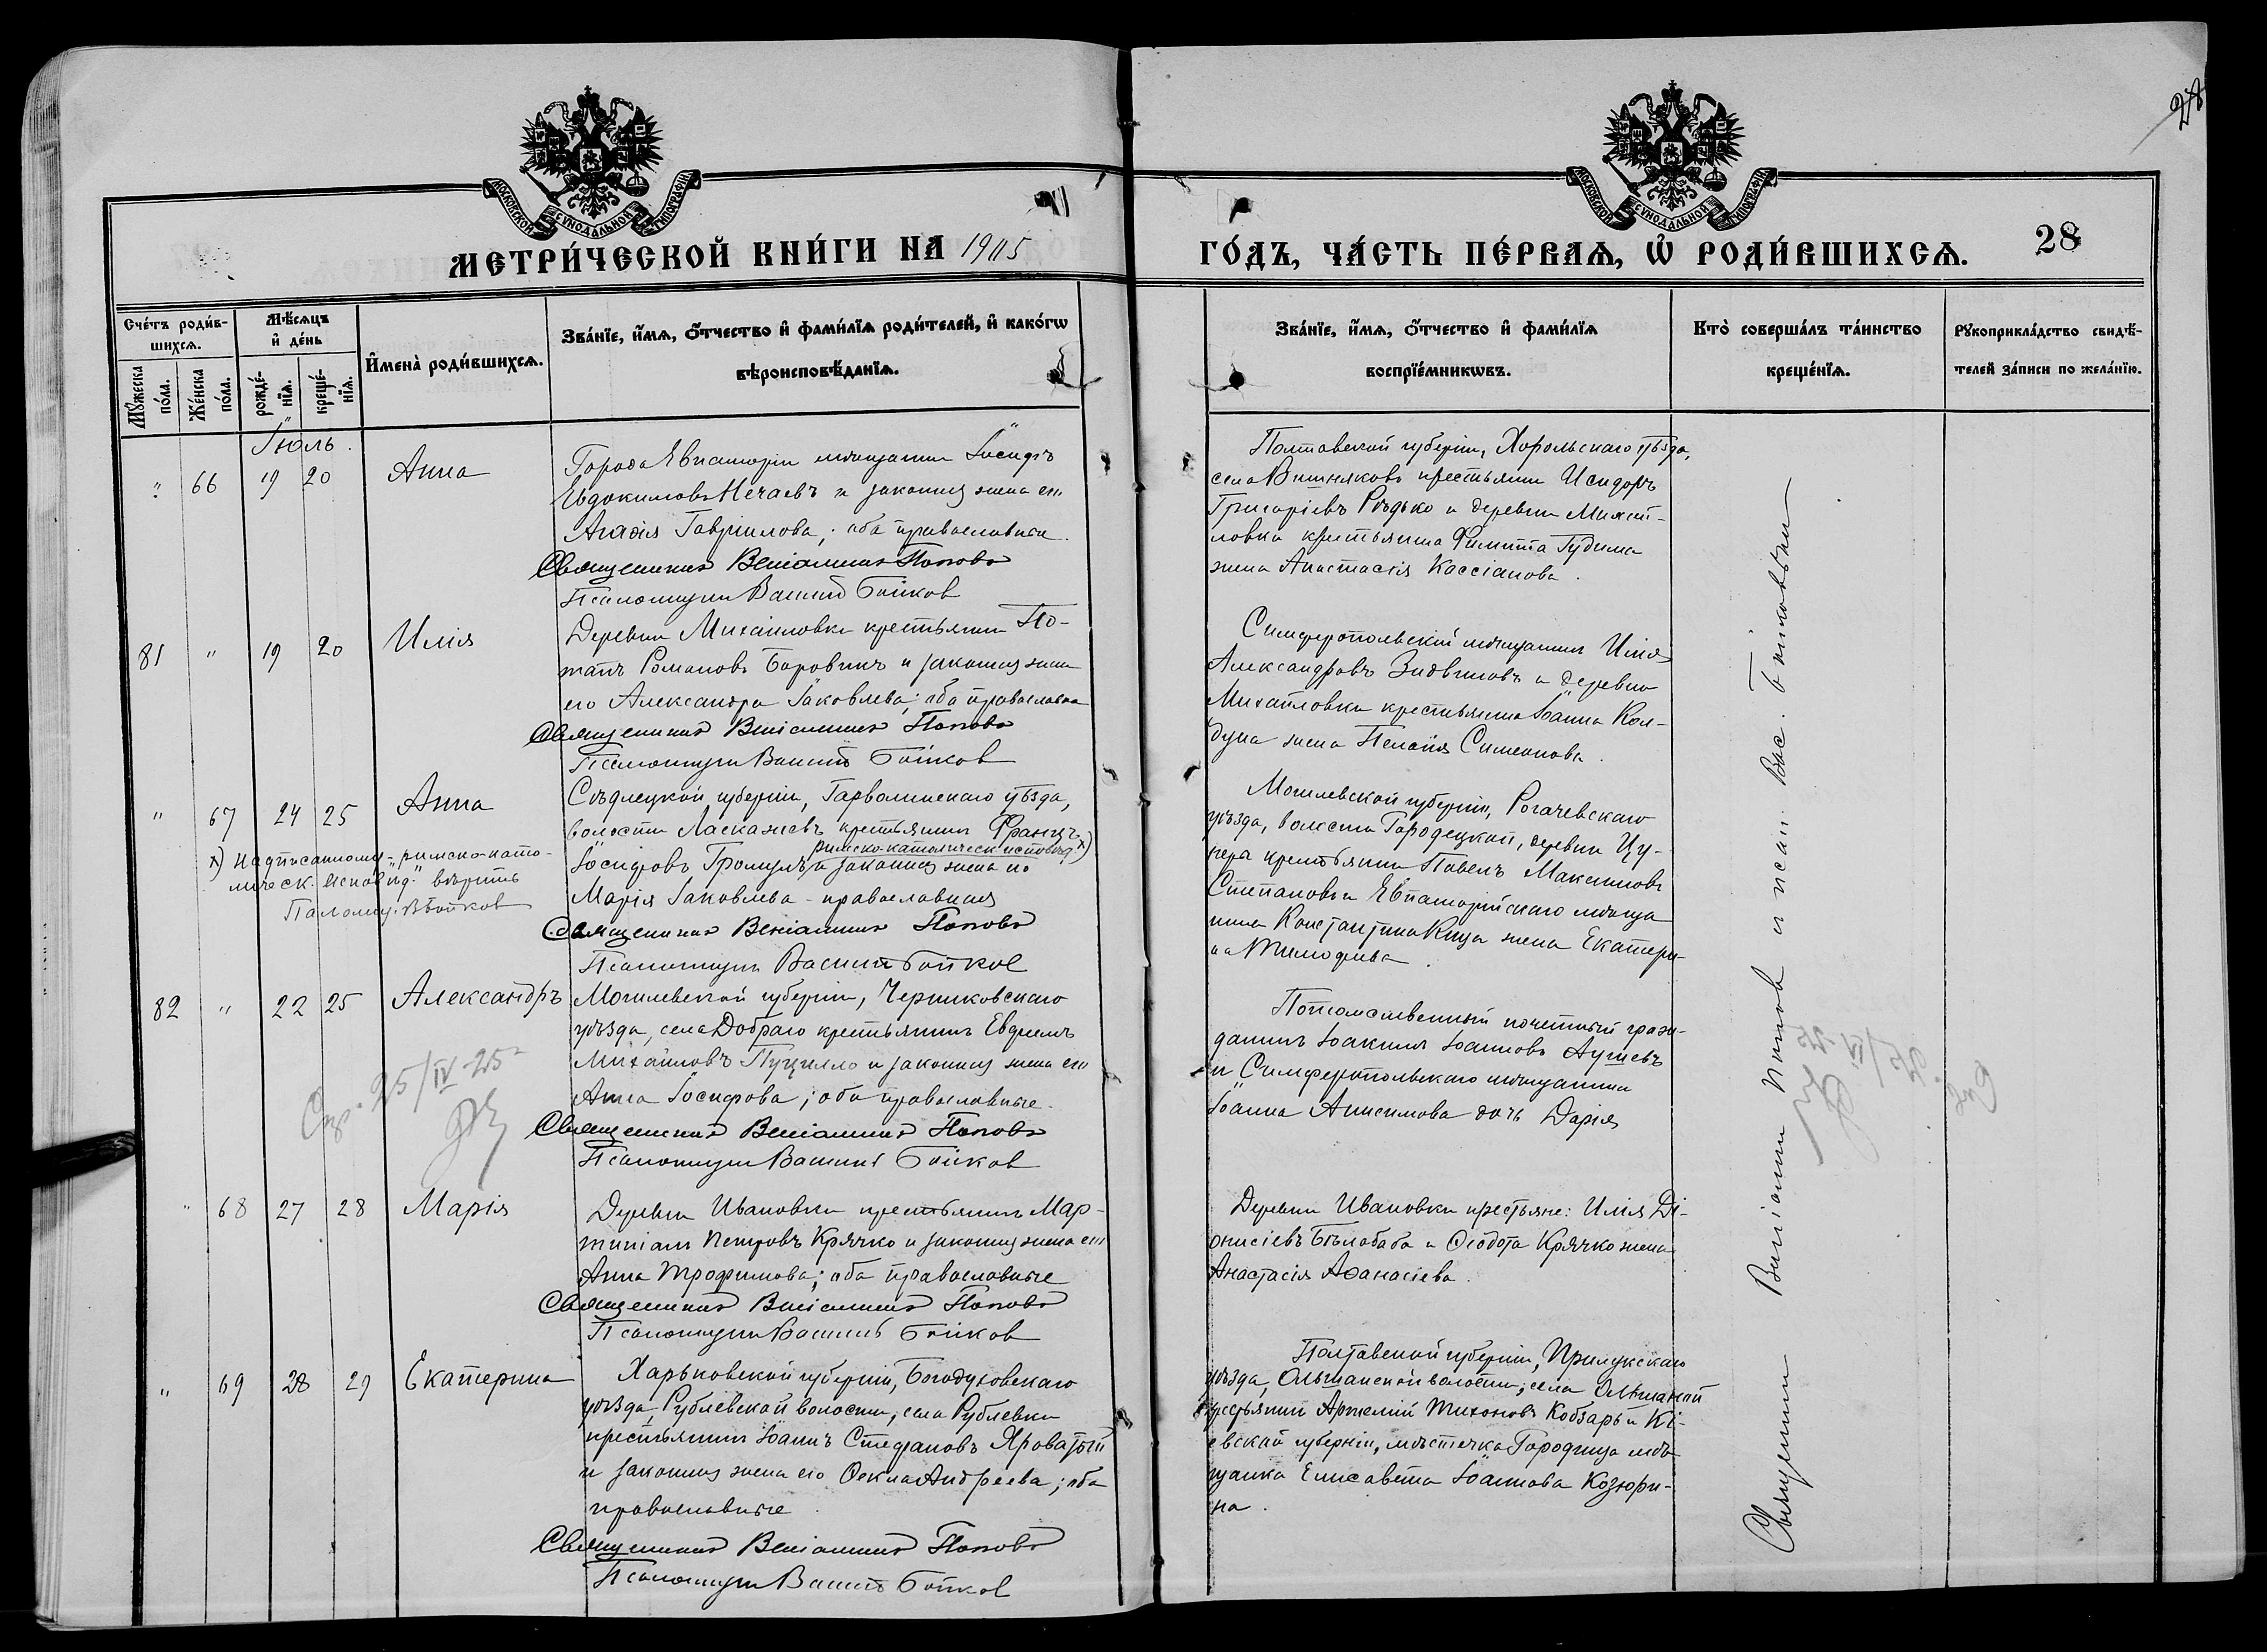 28
МОСКОВСКОЙ СУНОДАЛЬНОЙ ТИПОГРАФІИ
МОСКОВСКОЙ СУНОДАЛЬНОЙ ТИПОГРАФІИ
МЕТРИ́ЧЕСКОЙ КНИ́ГИ НА 1905
ГО́ДЪ, ЧА́СТЬ ПЕ́РВАѦ, Ѡ҆ РОДИ́ВШИХСѦ.
28
Сче́тъ роди́в-
шихсѧ.
Мꙋ́жеска
по́ла.
Же́нска
по́ла.
Мѣ́сѧцъ
и҆ де́нь
рожде́-
нїѧ.
креще́-
нїѧ.
И҆мена̀ роди́вшихсѧ.
Зва́нїе, и҆́мѧ, ѻ҆́тчество и҆ фами́лїѧ роди́телей, и҆ како́гѡ
вѣроисповѣ́данїѧ.
Зва́нїе, и҆́мѧ, ѻ҆́тчество и҆ фами́лїѧ
воспрїе́мникѡвъ.
Кто̀ соверша́лъ та́инство
креще́нїѧ.
Рꙋкоприкла́дство свидѣ́-
телей за́писи по жела́нїю.
Іюль.
" 66 19 20 Анна
Города Евпаторіи мѣщанинъ Іосифъ
Евдокимовъ Нечаевъ и законная жена его
Агаѳія Гавріилова; оба православные.
Священникъ Веніаминъ Поповъ
Псаломщикъ Василій Бойков
Полтавской губерніи, Хорольскаго уѣзда,
села Вишняковъ крестьянинъ Исидоръ
Григоріевъ Рѣдько и деревни Михай-
ловки крестьянина Филиппа Гудима
жена Анастасія Кассіанова.
81 " 19 20 Илія
Деревни Михайловки крестьянинъ По-
тапъ Романовъ Боровикъ и законная жена
его Александра Іаковлева; оба православные
Священникъ Веніаминъ Поповъ
Псаломщикъ Василій Бойков
Симферопольскій мѣщанинъ Илія
Александровъ и деревни
Михайловки крестьянина Іоанна Кол-
дуна жена Пелагія Симеонова.
" 67 24 25 Анна
х) Надписанному "римско-като-
лическ. исповѣд." вѣрить
Псаломщ. В. Бойков
Сѣдлецкой губерніи, Гарволинскаго уѣзда,
волости Ласкажевъ крестьянинъ Францъ
римско-католическ. исповѣд. х)
Іосифовъ Громулъ и законная жена его
Марія Іаковлева - православная
Священникъ Веніаминъ Поповъ
Псаломщикъ Василій Бойков
Могилевской губерніи, Рогачевскаго
уѣзда, волости Городецкой, деревни Цу-
пера крестьянинъ Павелъ Максимовъ
Степановъ и Евпаторійскаго мѣща
нина Константина Кица жена Екатери-
на Тимофеева.
82 " 22 25 Александръ
Могилевской губерніи, Чериковскаго
уѣзда, села Добраго крестьянинъ Евфимъ
Михайловъ Пуцилло и законная жена его
Анна Іосифова; оба православные.
Священникъ Веніаминъ Поповъ
Псаломщикъ Василій Бойков
Потомственный почетный граж-
данинъ Іоакимъ Іоанновъ
и Симферопольскаго мѣщанина
Іоанна Анисимова дочь Дарія
Спр. 25/IV-25
" 68 27 28 Марія
Деревни Ивановки крестьянинъ Мар-
тиніанъ Петровъ Крячко и законная жена его
Анна Трофимова; оба православные
Священникъ Веніаминъ Поповъ
Псаломщикъ Василій Бойков
Деревни Ивановки крестьяне: Илія Ді-
онисіевъ Бѣлобаба и Ѳеодота Крячко жена
Анастасія Аѳанасіева.
" 69 28 29 Екатерина
Харьковской губерніи, Богодуховскаго
уѣзда, Рублевской волости, села Рублевки
крестьянинъ Іоаннъ Стефановъ Яроватый
и законная жена его Ѳекла Андреева; оба
православные.
Священникъ Веніаминъ Поповъ
Псаломщикъ Василій Бойков
Полтавской губерніи, Прилукскаго
уѣзда, Ольшанской волости, села Ольшаной
крестьянинъ Артемій Тихоновъ Кобзарь и Кі-
евской губерніи, мѣстечка Городища мѣ-
щанка Елисавета Іоаннова Козюри-
на.
Священникъ Веніаминъ Попов и псал. Вас. Бойковым